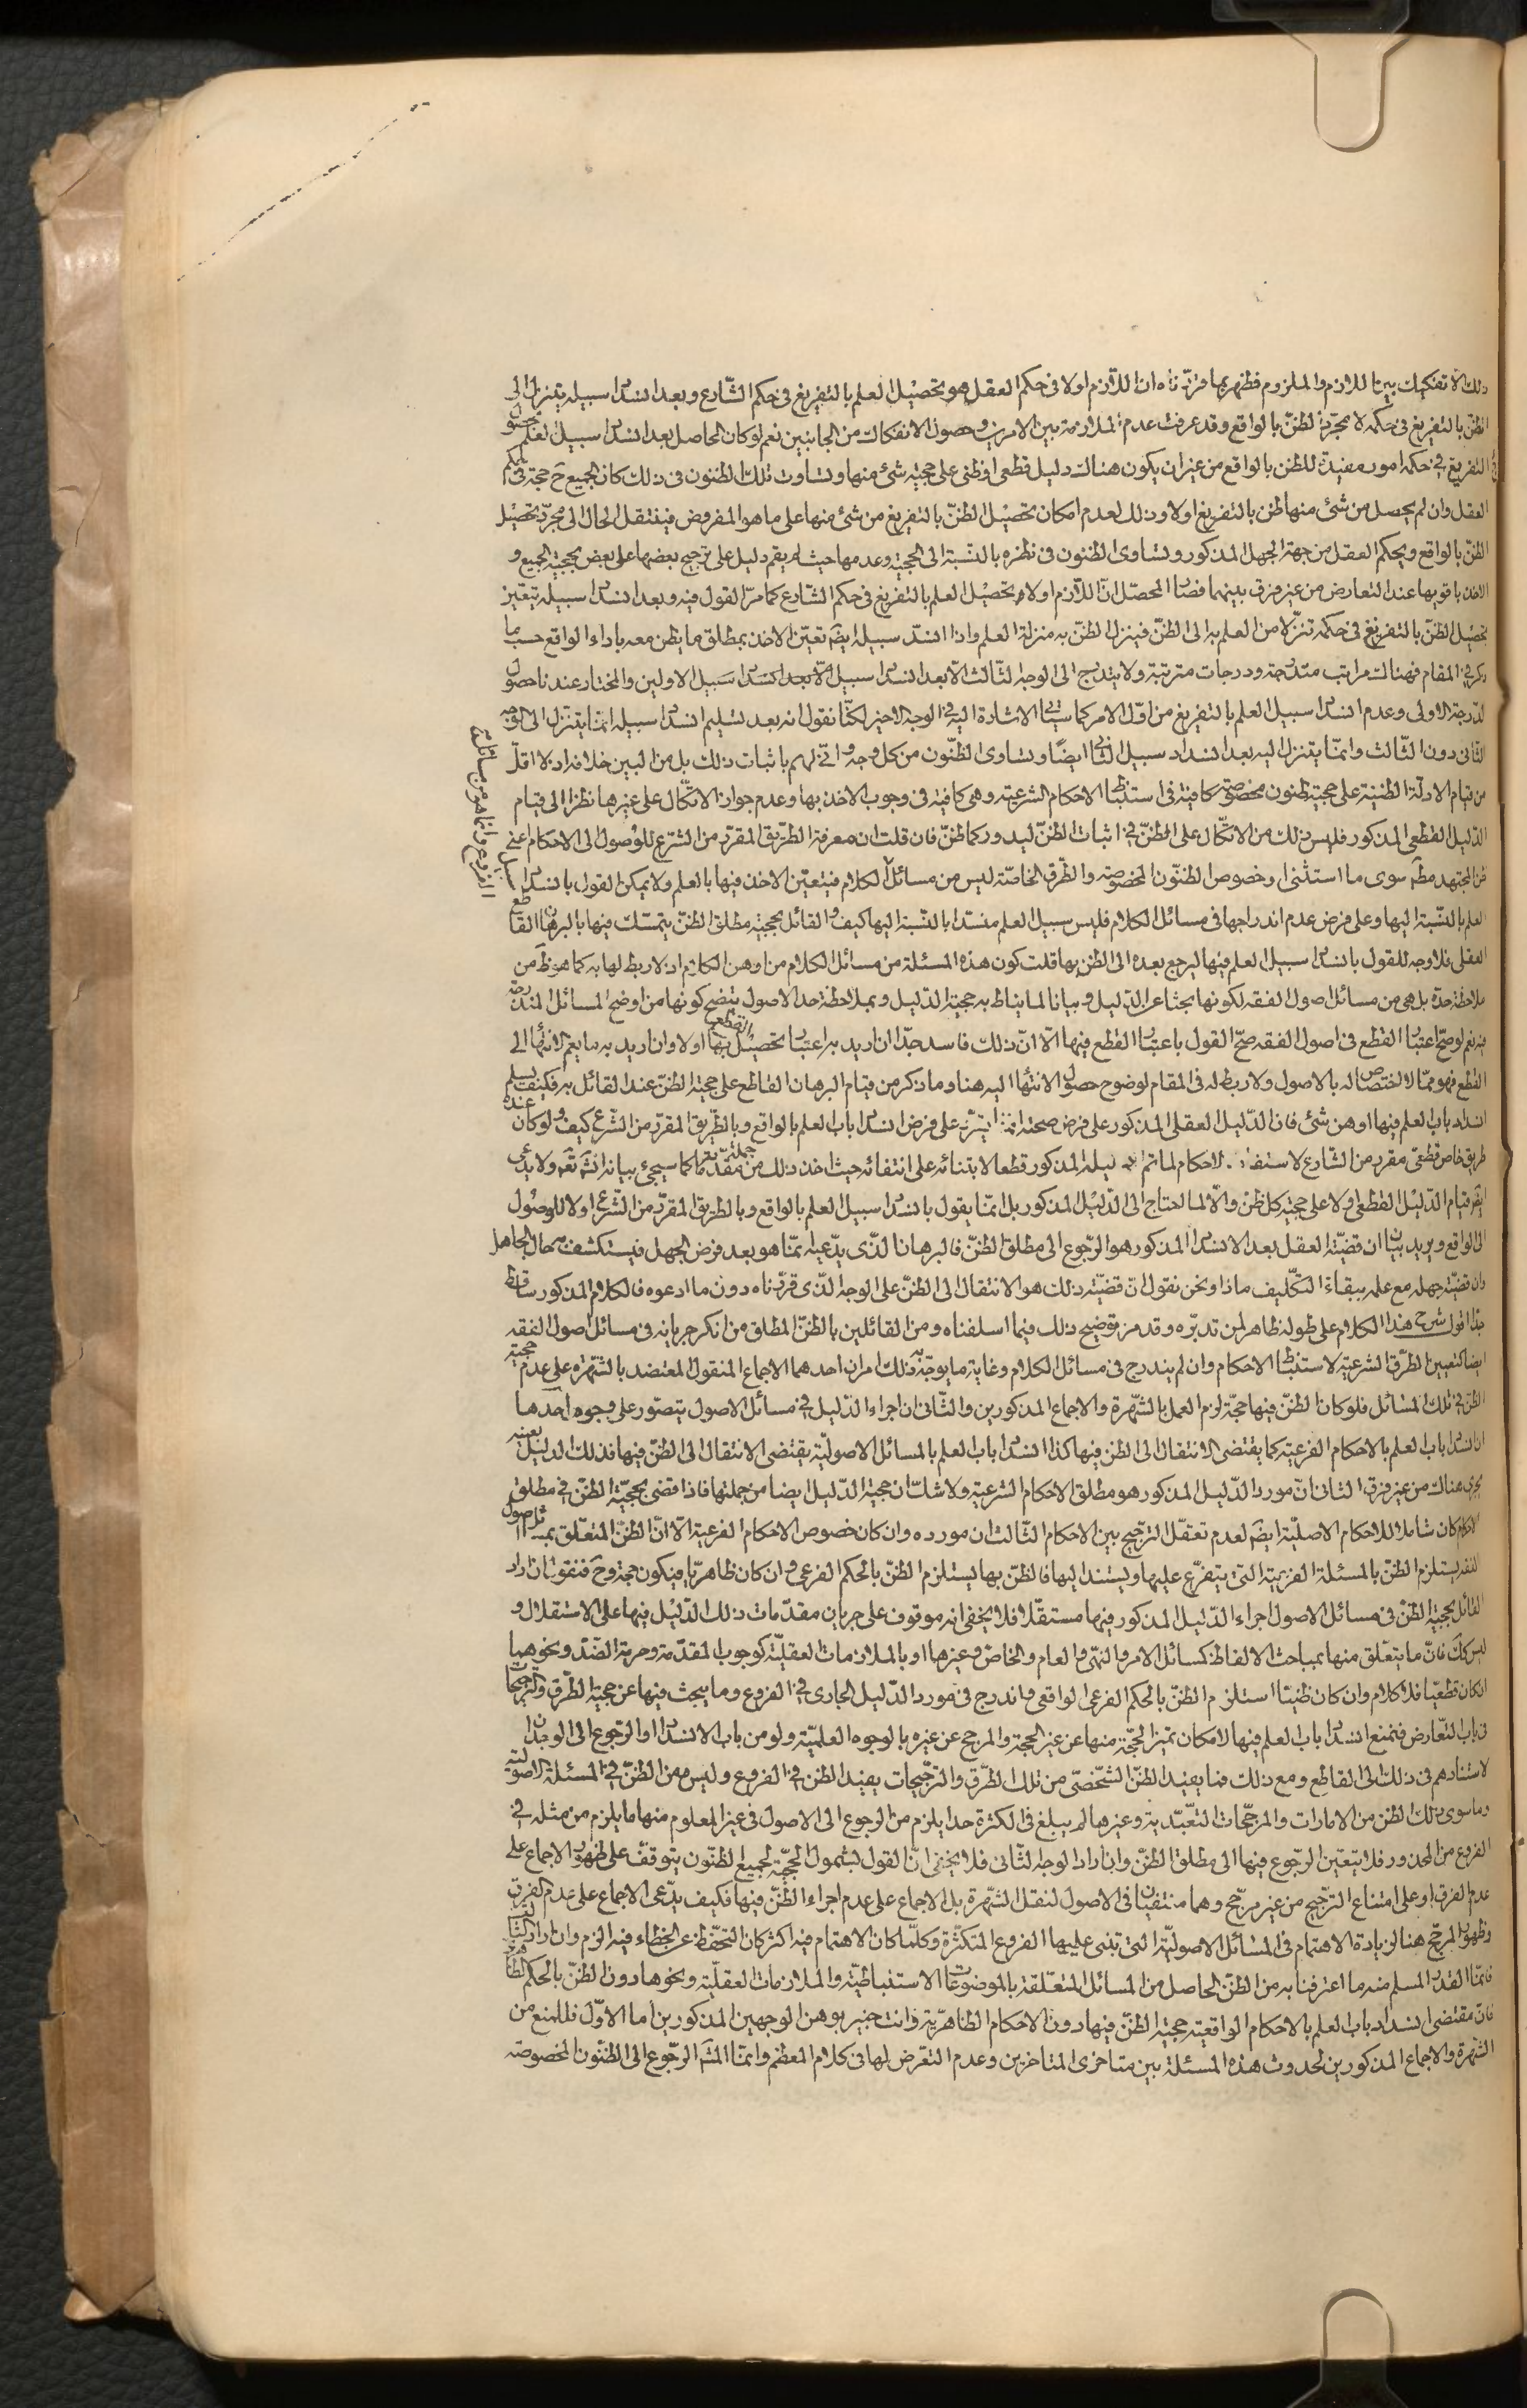 ذلك لا تفكيك بين اللازم والملزوم فظهر بما قررناه ان اللازم اولا فى حكم العقل هو تحصيل العلم بالتفريغ فى حكم الشارع وبعد انسداد سبيله يتنزل الى
الظن بالتفريغ فى حكمه لا مجرد الظن بالواقع وقد عرفت عدم الملازمة بين الامرين وحصول الانفكاك من الجانبين نعم لو كان الحاصل بعد انسداد سبيل العلم بحصول
التفريغ فى حكمه امور مفيدة للظن بالواقع من غير ان يكون هناك دليل قطعى او ظنى على حجية شئ منها وتساوت تلك الظنون فى ذلك كان الجميع ح حجة فى حكم
العقل وان لم يحصل من شئ منها ظن بالتفريغ اولا وذلك لعدم امكان تحصيل الظن بالتفريغ من شئ منها على ما هو المفروض فينتقل الحال الى مجرد تحصيل
الظن بالواقع ويحكم العقل من جهة الجهل المذكور وتساوى الظنون فى نظره بالنسبة الى الحجية وعدمها حيث لم يقم دليل على ترجيح بعضها على بعض بحجية الجميع و
الاخذ باقويها عند التعارض من غير فرق بينهما فصار المحصل ان اللازم اولا هو تحصيل العلم بالتفريغ فى حكم الشارع كما مر القول فيه وبعد انسداد سبيله يتعين
تحصيل الظن بالتفريغ فى حكمه تنزلا من العلم به الى الظن فينزل الظن به منزلة العلم واذا انسد سبيله ايضم تعين الاخذ بمطلق ما يظن معه باداء الواقع حسب ما
ذكر فى المقام فهناك مراتب متدرجة ودرجات مترتبة ولا يتدرج الى الوجه الثالث الا بعد انسداد سبيل الاولين والمختار عندنا حصول
الدرجة الاولى وعدم انسداد سبيل العلم بالتفريغ من اول الامر كما سيأتى الاشارة اليه فى الوجه الاخير لكنا نقول انه بعد تسليم انسداد سبيله انما يتنزل الى الوجه
الثانى دون الثالث وانما يتنزل اليه بعد انسداد سبيل الثانى ايضا وتساوى الظنون من كل وجه وانى لهم باثبات ذلك بل من البين خلافه اذ لا اقل
من قيام الادلة الظنية على حجية ظنون مخصوصة كافية فى استنباط الاحكام الشرعية وهى كافية فى وجوب الاخذ بها وعدم جواز الاتكال على غيرها نظرا الى قيام
الدليل القطعى المذكور فليس ذلك من الاتكال على الظن فى اثبات الظن ليدور كما ظن فان قلت ان معرفة الطريق المقرر من الشرع للوصول الى الاحكام اعنى
ظن المجتهد مطم سوى ما استثنى او خصوص الظنون المخصوصة والطرق الخاصة ليس من مسائل الفروع وانما هو من مسائل
الكلام فيتعين الاخذ فيها بالعلم ولا يمكن القول بانسداد سبيل
العلم بالنسبة اليها وعلى فرض عدم اندراجها فى مسائل الكلام فليس سبيل العلم منسدا بالنسبة اليها كيف والقائل بحجية مطلق الظن يتمسك فيها بالبرهان القاطع
العقلى فلا وجه للقول بانسداد سبيل العلم فيها ليرجع بعده الى الظن بها قلت كون هذه المسئلة من مسائل الكلام من اوهن الكلام اذ لا ربط لها به كما هو ظ من
ملاحظة حده بل هى من مسائل اصول الفقه لكونها بحثا عن الدليل وبيانا لما يناط به حجية الدليل وبملاحظة حد الاصول يتضح كونها من اوضح المسائل المندرجة
فيه نعم لو صح اعتبار القطع فى اصول الفقه صح القول باعتبار القطع فيها الا ان ذلك فاسد جدا ان اريد به اعتبار تحصيل القطع بها اولا وان اريد به ما يعم الانتهاء الى
القطع فهو مما لا اختصاص له بالاصول ولا ربط له فى المقام لوضوح حصول الانتهاء اليه هنا وما ذكر من قيام البرهان القاطع على حجية الظن عند القائل به فكيف يسلم
انسداد باب العلم فيها اوهن شئ فان الدليل العقلى المذكور على فرض صحته انما يترتب على فرض انسداد باب العلم بالواقع وبالطريق المقرر من الشرع كيف ولو كان عنده
طريق خاص قطعى مقرر من الشارع لاستفادة الاحكام لما تم دليله المذكور قطعا لابتنائه على انتفائه حيث اخذ ذلك من جملة مقدماته كما سيجئ بيانه انشم تعم ولا يدعى
ايضم قيام الدليل القطعى اولا على حجية كل ظن والا لما احتاج الى الدليل المذكور بل انما يقول بانسداد سبيل العلم بالواقع وبالطريق المقرر من الشرع اولا للوصول
الى الواقع ويريد بيان ان قضية العقل بعد الانسداد المذكور هو الرجوع الى مطلق الظن فالبرهان الذى يدعيه انما هو بعد فرض الجهل فيستكشف به حال الجاهل
وان قضية جهله مع علمه ببقاء التكليف ماذا ونحن نقول ان قضية ذلك هو الانتقال الى الظن على الوجه الذى قررناه دون ما ادعوه فالكلام المذكور ساقط
جدا اقول شرح هذا الكلام على طوله ظاهر لمن تدبره وقد مر توضيح ذلك فيما اسلفناه ومن القائلين بالظن المطلق من انكر جريانه فى مسائل اصول الفقه
ايضا كتعيين الطرق الشرعية لاستنباط الاحكام وان لم يندرج فى مسائل الكلام وغاية ما يوجه به ذلك امران احدهما الاجماع المنقول المعتضد بالشهرة على عدم حجية
الظن فى تلك المسائل فلو كان الظن فيها حجة لزم العمل بالشهرة والاجماع المذكورين والثانى ان اجراء الدليل فى مسائل الاصول يتصور على وجوه احدها
ان انسداد باب العلم بالاحكام الفرعية كما يقتضى الانتقال الى الظن فيها كذا انسداد باب العلم بالمسائل الاصولية يقتضى الانتقال الى الظن فيها فذلك الدليل بعينه
يجرى هناك من غير فرق الثانى ان مورد الدليل المذكور هو مطلق الاحكام الشرعية ولا شك ان حجية الدليل ايضا من جملتها فاذا قضى بحجية الظن فى مطلق
الاحكام كان شاملا للاحكام الاصلية ايضم لعدم تعقل الترجيح بين الاحكام الثالث ان مورده وان كان خصوص الاحكام الفرعية الا ان الظن المتعلق بمسائل اصول
الفقه يستلزم الظن بالمسئلة الفرعية التى يتفرع عليها ويستند اليها فالظن بها يستلزم الظن بالحكم الفرعى وان كان ظاهريا فيكون حجة وح فنقول ان اراد
القائل بحجية الظن فى مسائل الاصول اجراء الدليل المذكور فيها مستقلا فلا يخفى انه موقوف على جريان مقدمات ذلك الدليل فيها على الاستقلال و
ليس كك فان ما يتعلق منها بمباحث الالفاظ كمسائل الامر والنهى والعام والخاص وغيرها او بالملازمات العقلية كوجوب المقدمة وحرمة الضد ونحوهما
ان كان قطعيا فلا كلام وان كان ظنيا استلزم الظن بالحكم الفرعى الواقعى فاندرج فى مورد الدليل الجارى فى الفروع وما يبحث فيها عن حجية الطرق والترجيحات
فى باب التعارض فنمنع انسداد باب العلم فيها لامكان تميز الحجة منها عن غير الحجة والمرجح عن غيره بالوجوه العلمية ولو من باب الانسداد او الرجوع الى الوجدان
لاستنادهم فى ذلك الى القاطع ومع ذلك فما يفيد الظن الشخصى من تلك الطرق والترجيحات يفيد الظن فى الفروع وليس من الظن فى المسئلة الاصولية
وما سوى ذلك الظن من الامارات والمرجحات التعبدية وغيرها لم يبلغ فى الكثرة حدا يلزم من الرجوع الى الاصول فى غير المعلوم منها ما يلزم من مثله فى
الفروع من المحذور فلا يتعين الرجوع فيها الى مطلق الظن وان اراد الوجه الثانى فلا يخفى ان القول بشمول الحجية لجميع الظنون يتوقف على ظهور الاجماع على
عدم الفرق او على امتناع الترجيح من غير مرجح وهما منتفيان فى الاصول لنقل الشهرة بل الاجماع على عدم اجراء الظن فيها فكيف يدعى الاجماع على عدم الفرق
وظهور المرجح هنا لزيادة الاهتمام فى المسائل الاصولية التى تبتنى عليها الفروع المتكثرة وكلما كان الاهتمام فيه اكثر كان التحفظ عن الخطاء فيه الزم وان اراد الثالث
فانما القدر المسلم منه ما اعترفنا به من الظن الحاصل من المسائل المتعلقة بالموضوعات الاستنباطية والملازمات العقلية ونحوها دون الظن بالحكم الظاهرى
فان مقتضى انسداد باب العلم بالاحكام الواقعية حجية الظن فيها دون الاحكام الظاهرية وانت خبير بوهن الوجهين المذكورين اما الاول فللمنع من
الشهرة والاجماع المذكورين لحدوث هذه المسئلة بين متاخرى المتاخرين وعدم التعرض لها فى كلام المعظم وانما الشم الرجوع الى الظنون المخصوصة